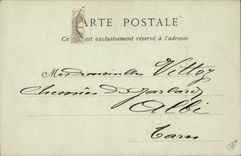 CARTE POSTALE
Ce est exclusivement réservé à l'adresse
Mesdemoiselles Vittoz
Chemin de
Albi
Tarn